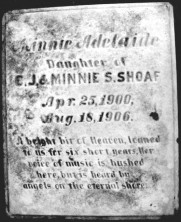 Minnie Adelaide
Daughter of
E.J.& MINNIE S. SHOAF
Apr. 25, 1900,
Aug. 18, 1906.
A bright bir of Heaven, loaned
to us for six short years, Her
voice of music is hushed
here, but is heard by
angels on the eternal shore.